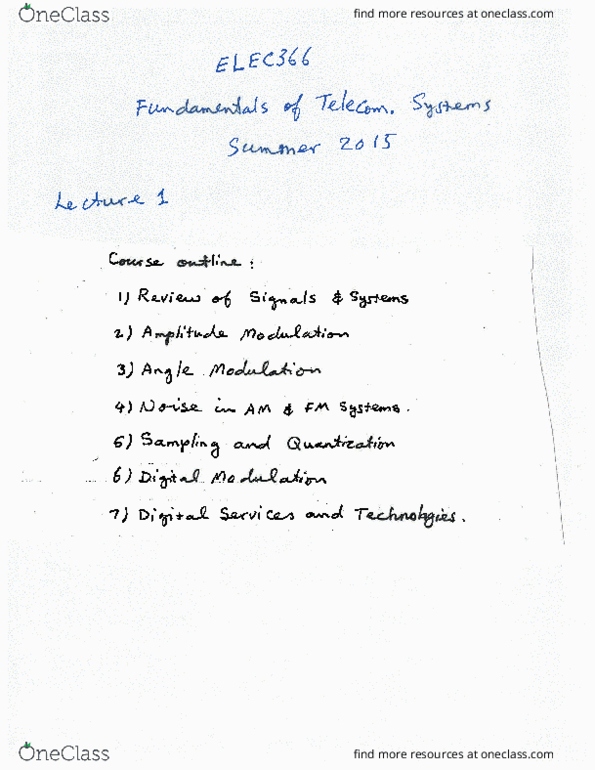 OneClass
find more resources at oneclass.com
ELEC366
Fundamentals of Telecom. Systems
Summer 2015
Lecture 1
Course outline :
1) Review of Signals & Systems
2) Amplitude Modulation
3) Angle Modulation
4) Noise in AM & FM Systems.
5) Sampling and Quantization
6) Digital Modulation
7) Digital Services and Technologies.
OneClass
find more resources at oneclass.com